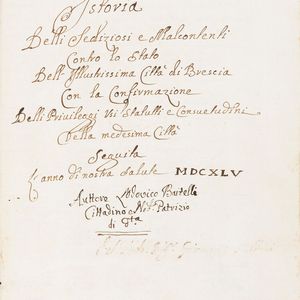 Istoria
Delli Sediziosi e Malcontenti
Contro lo Stato
Dell'Illustrissima Città di Brescia
Con la Confirmazione
Delli Privileggi Usi Statutti e Consuetudini
della medesima Città
Seguita
l'anno di nostra salute MDCXLV
Auttore Lodovico Butelli
Cittadino e Patrizio
di